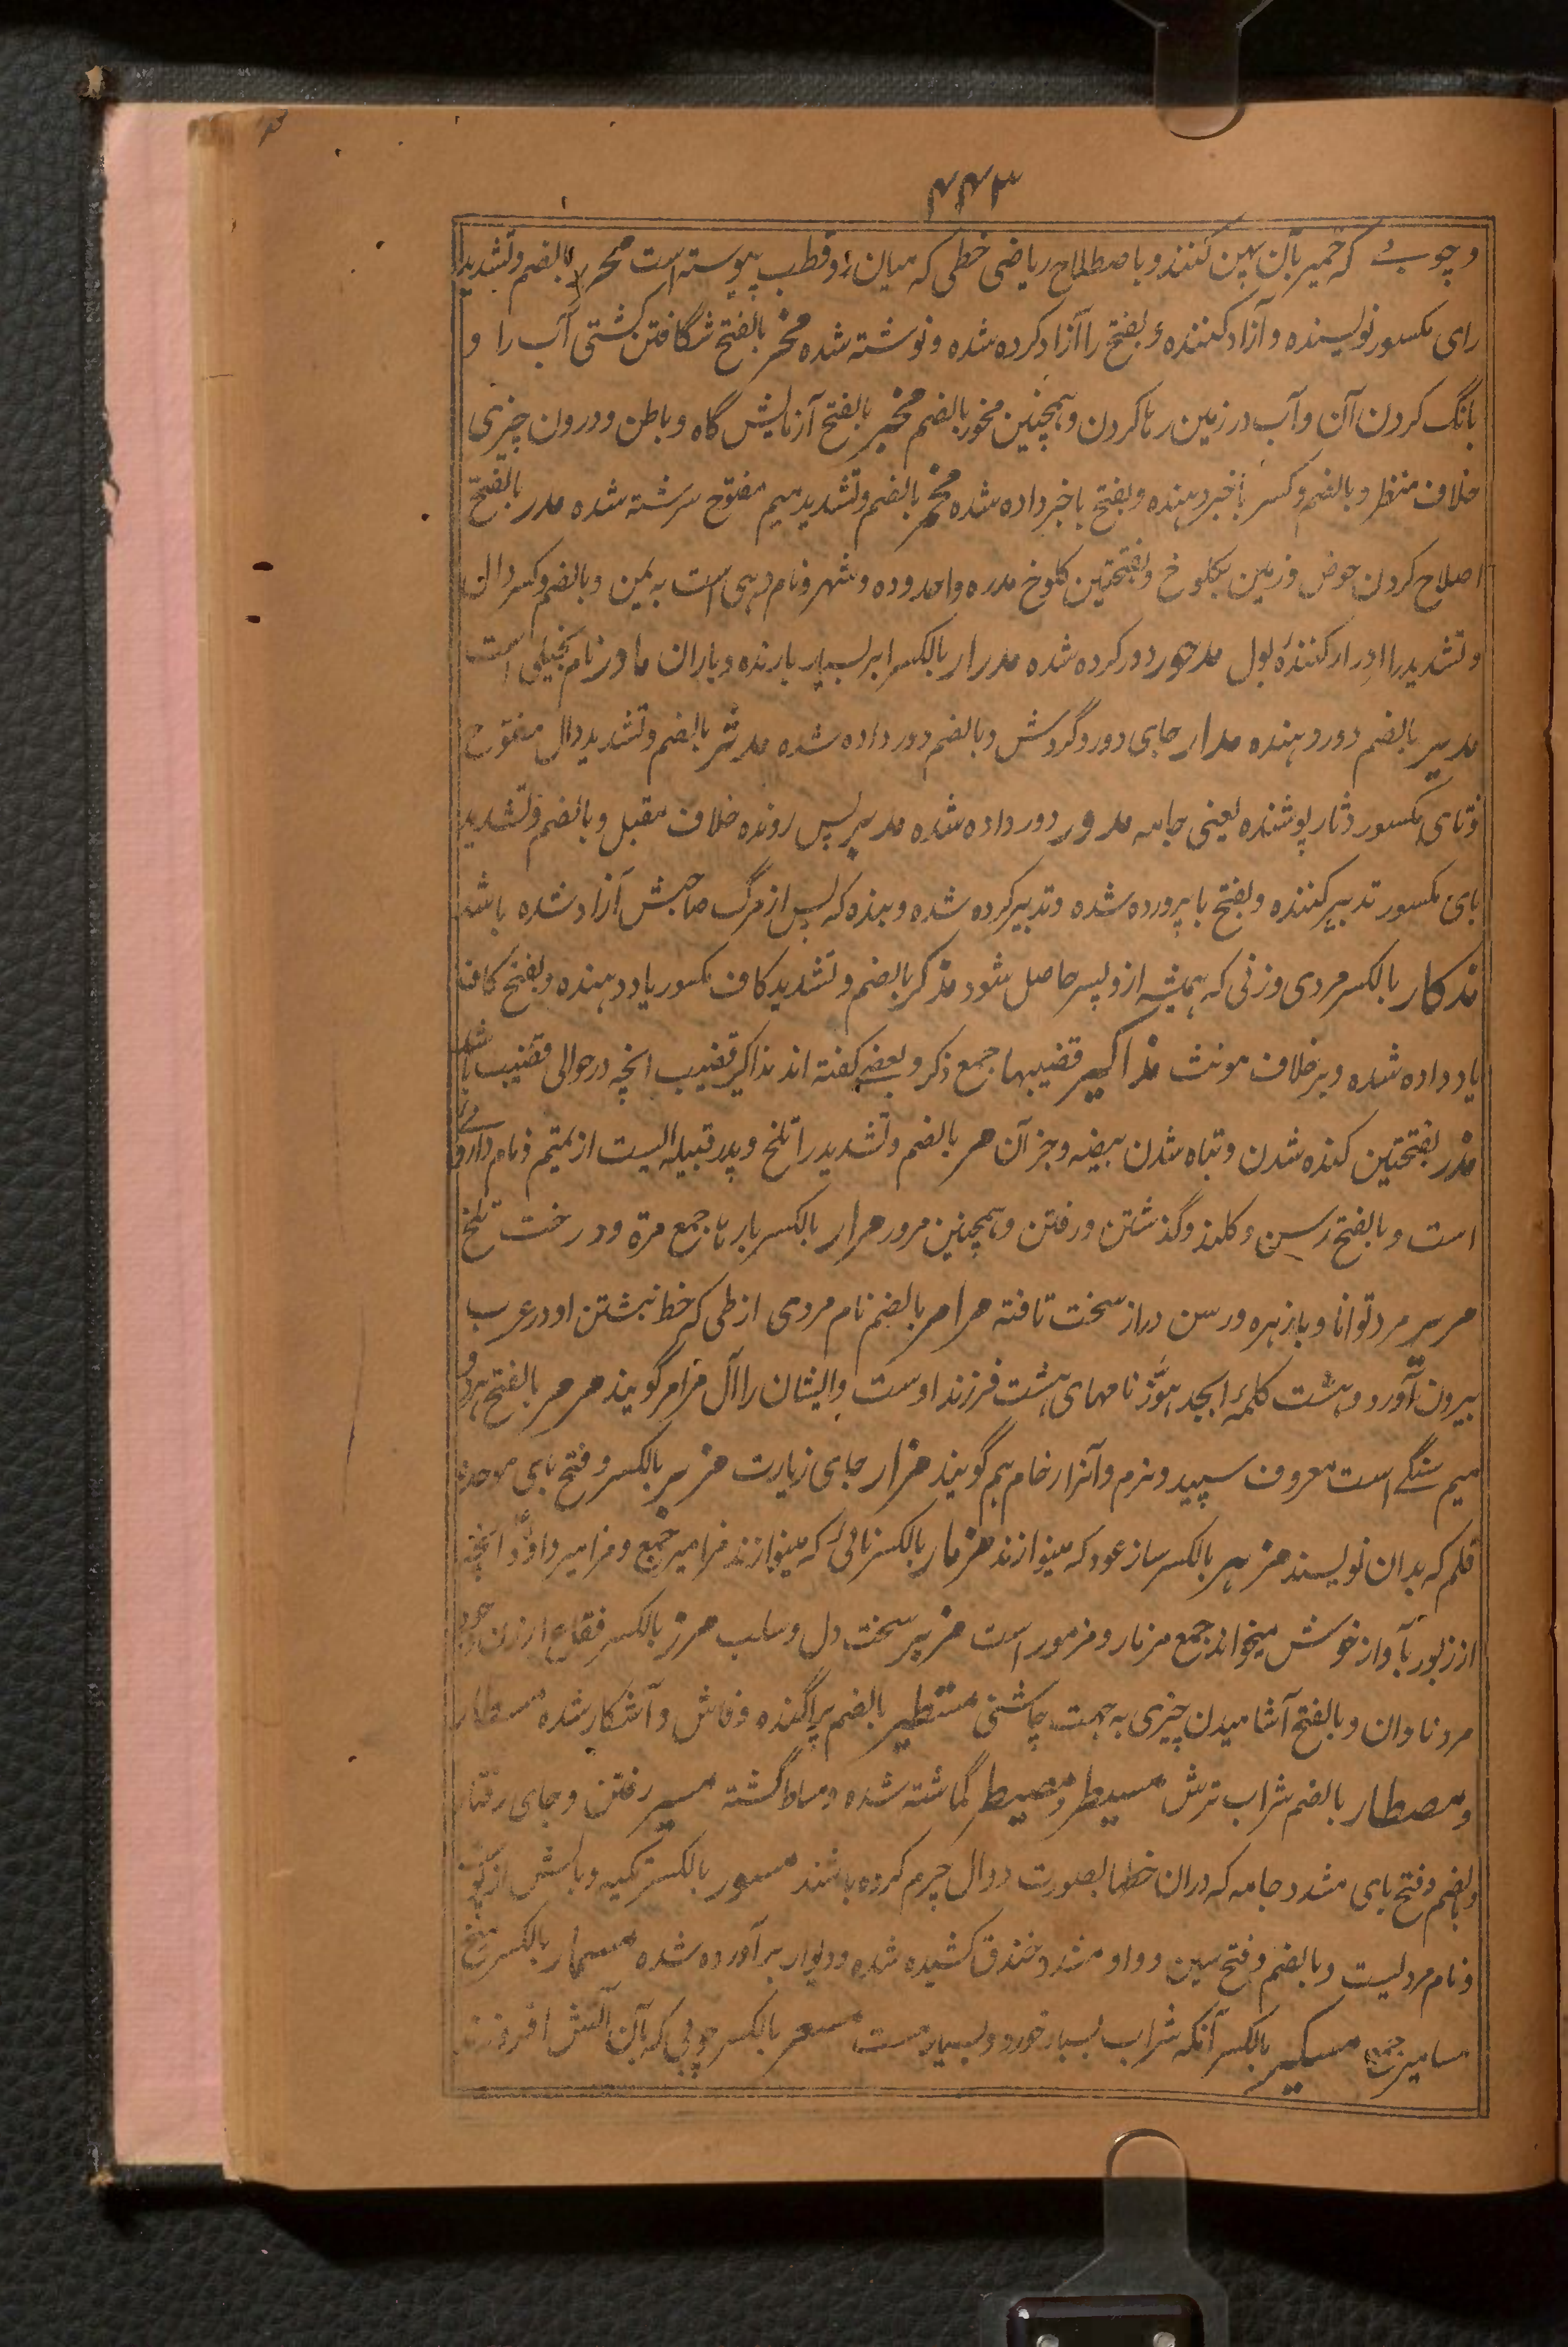 ۴۴۳
و چوبے که خمیر بآن پهن کنند و باصطلاح ریاضی خطی که میان دو قطب پیوسته است محرر بالضم و تشدید
رای مکسور نویسنده و آزاد کننده و بفتح را آزاد کرده شده و نوشته شده مخر بالفتح شگافتن کشتی آب را و
بانگ کردن آن و آب در زمین رها کردن و همچنین مخور بالضم مخبر بالفتح آزمایش گاه و باطن و درون چیزی
خلاف منظر و بالضم و کسر با خبر دهنده و بفتح با خبر داده شده مخمر بالضم و تشدید میم مفتوح سرشته شده مدر بالفتح
اصلاح کردن حوض و زمین بکلوخ و بفتحتین کلوخ مدره واحد و ده و شهر و نام دهی است به یمن و بالضم و کسر دال
و تشدید را ادرار کنندهٔ بول مدحور دور کرده شده مدرار بالکسر ابر بسیار بارنده و باران مادر نام بخیلی است
مدیر بالضم دور دهنده مدار جای دور و گردش و بالضم دور داده شده مدثر بالضم و تشدید دال مفتوح
و ثای مکسور دثار پوشنده یعنی جامه مدور دور داده شده مدبر پس رونده خلاف مقبل و بالضم و تشدید
بای مکسور تدبیر کننده و بفتح با پرورده شده و تدبیر کرده شده و بنده که پس از مرگ صاحبش آزاد شده باشد
مذکار بالکسر مردی و زنی که همیشه ازو پسر حاصل شود مذکر بالضم و تشدید کاف مکسور یاد دهنده و بفتح کاف
یاد داده شده و بر خلاف مونث مذاکیر قضیبها جمع ذکر و بعضے گفته اند مذاکیر قضیب انچه در حوالی قضیب باشد
مذر بفتحتین گنده شدن و تباه شدن بیضه و جز آن مر بالضم و تشدید را تلخ و پدر قبیله الیست از تمیم و نام داروے
است و بالفتح رسن و کلند و گذشتن و رفتن و همچنین مرور مرار بالکسر بارها جمع مرة و درخت تلخ
مریر مرد توانا و با زهره و رسن دراز سخت تافته مرامر بالضم نام مردی از طی که خط نبشتن او در عرب
بیرون آورد و هشت کلمهٔ ابجد هوّز نامهای هشت فرزند اوست و ایشان را آل مرامر گویند مرمر بالفتح هردو
میم سنگے است معروف سپید و نرم و آنرا رخام هم گویند مزار جای زیارت مزبر بالکسر و فتح بای موحده
قلم که بدان نویسند مزهر بالکسر ساز عود که مینوازند مزمار بالکسر نائی که مینوازند مزامیر جمع و مزامیر داؤد انچه
از زبور بآواز خوش میخواند جمع مزمار و مزمور است مزیر سخت دل و صلب مزر بالکسر فقاع ارزن و جو
مرد نادان و بالفتح آشامیدن چیزی به جهت چاشنی مستطیر بالضم پراگنده و فاش و آشکار شده مسطار
و مصطار بالضم شراب ترش مسیطر و مصیطر گماشته شده و مسلط گشته مسیر رفتن و جای رفتار
و بالضم و فتح یای مشدد جامه که دران خطها بصورت دوال چرم کرده باشند مسور بالکسر تکیه و بالش از
و نام مردیست و بالضم و فتح سین و واو مشدد خندق کشیده شده و دیوار برآورده شده مسمار بالکسر میخ
مسامیر جمع مسکیر بالکسر آنکه شراب بسیار خورد و بسیار مست مسعر بالکسر چوبی که بآن آتش افروزند